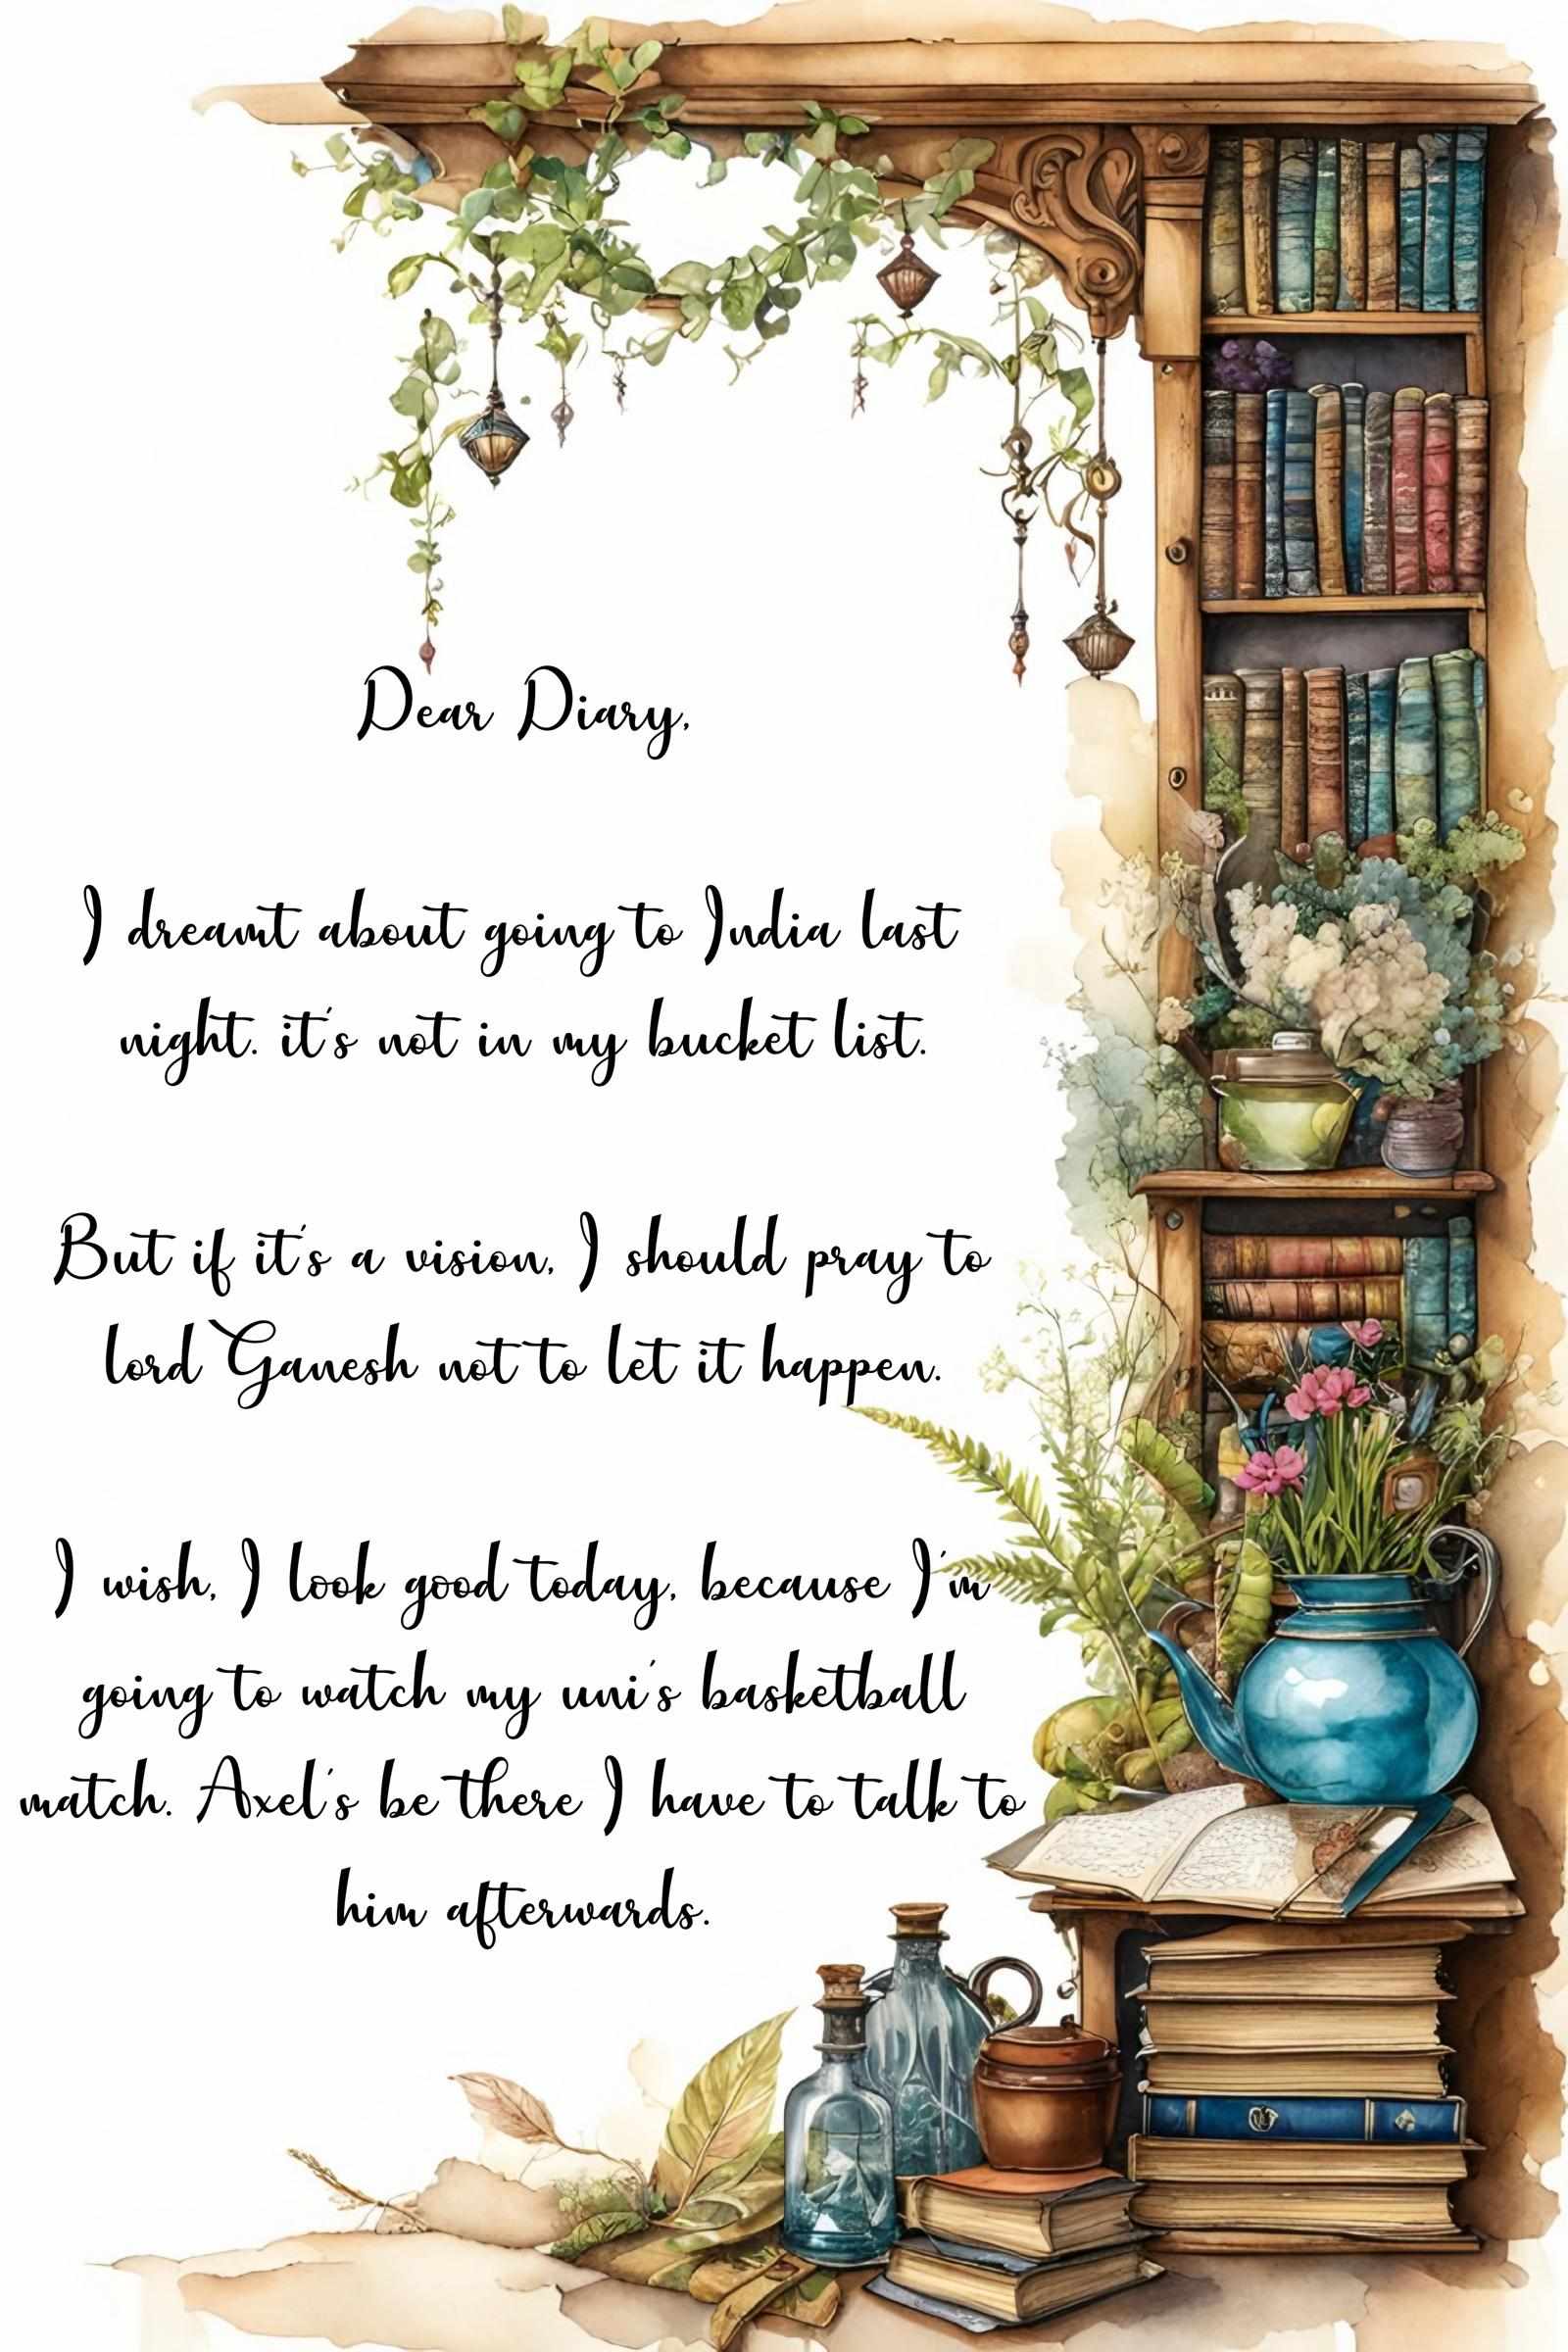 Dear Diary,
I dreamt about going to India last
night. it's not in my bucket list.
But if it's a vision, I should pray to
lord Ganesh not to let it happen.
I wish, I look good today, because I'm
going to watch my uni's basketball
match. Axel's be there I have to talk to
him afterwards.